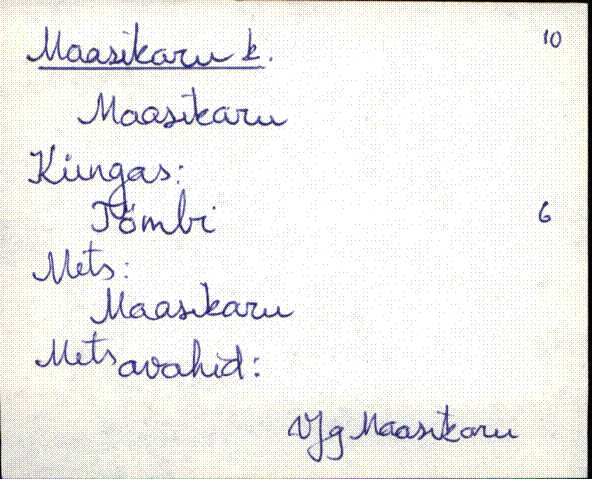 Maasikaru k. 10
Maasikaru
Küngas:
Tömbi 6
Mets:
Maasikaru
Metsavahid:
Vjg Maasikaru